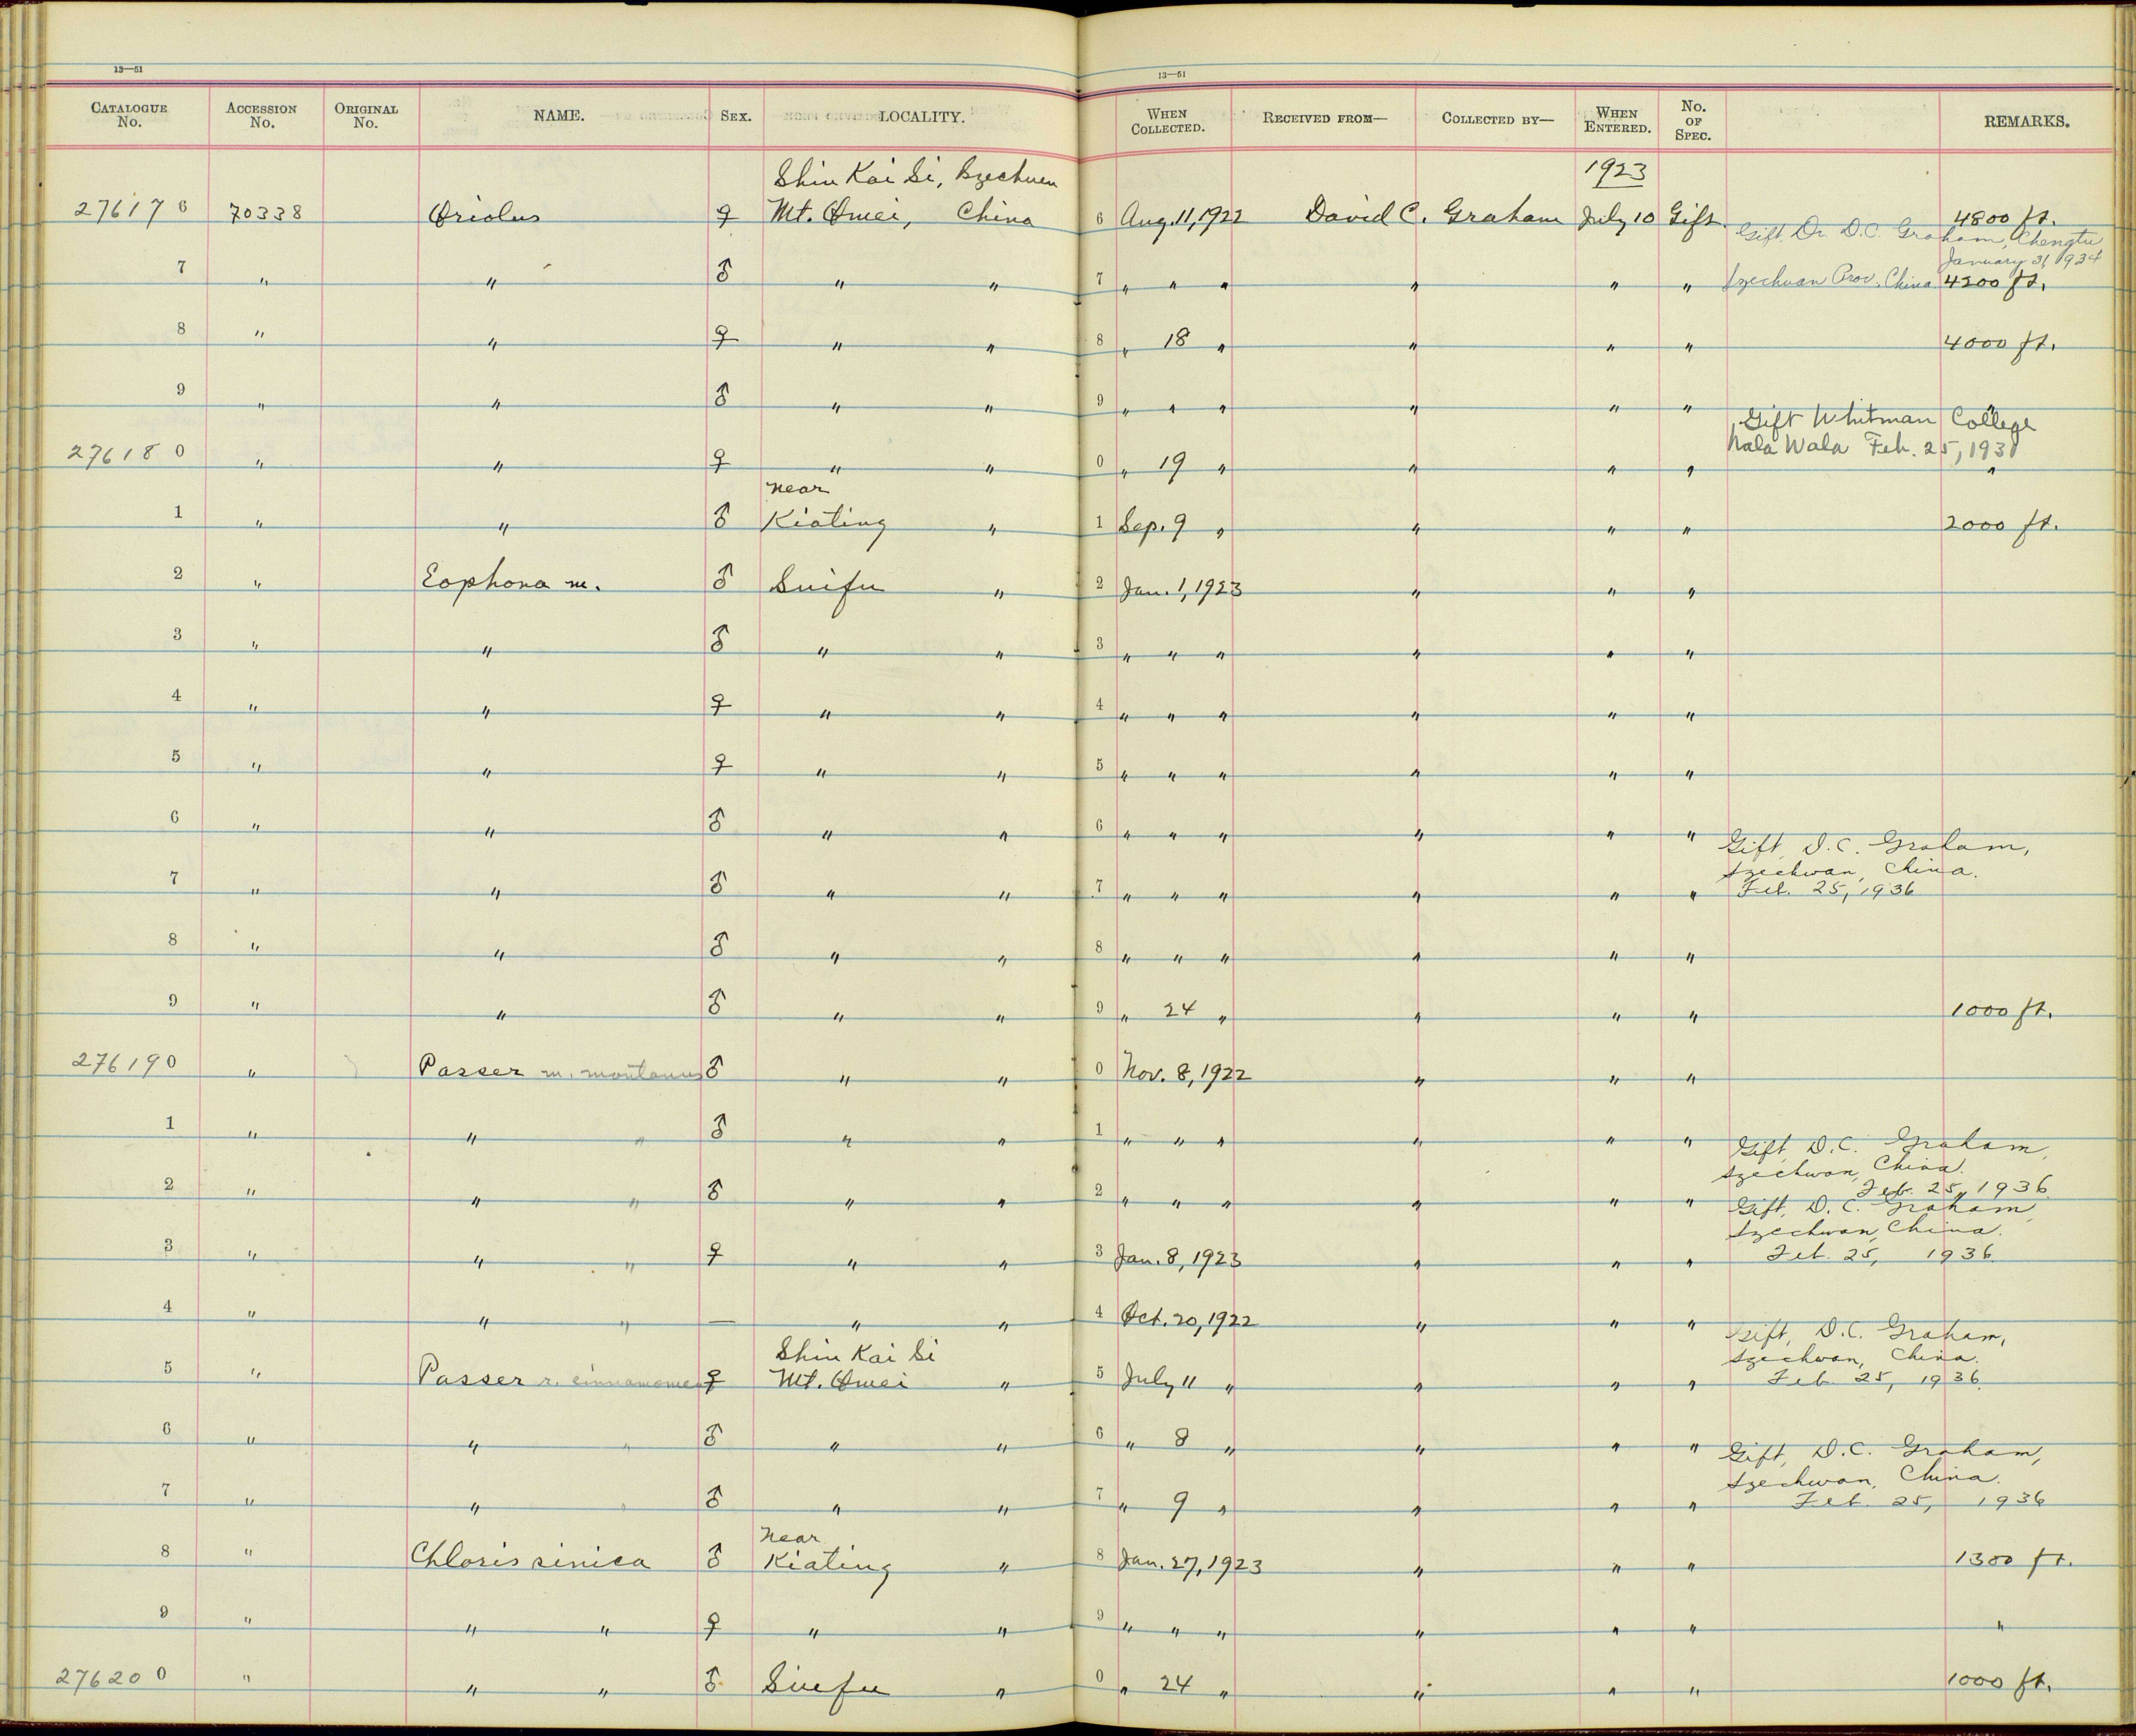 13—51 13—51
CATALOGUE No. ACCESSION No. ORIGINAL No. NAME. SEX. LOCALITY. WHEN COLLECTED. RECEIVED FROM— COLLECTED BY— WHEN ENTERED. No. OF SPEC. REMARKS.
Shin Kai Si, Szechuen 1923
27617 6 70338 Oriolus ♀ Mt. Omei, China 6 Aug. 11, 1922 David C. Graham July 10 Gift. 4800 ft.
Gift Dr. D.C. Graham, Chengtu,
January 31, 1934
7 " " ♂ " " 7 " " " " " " Szechuan Prov., China 4200 ft.
8 " " ♀ " " 8 " 18 " " " " 4000 ft.
9 " " ♂ " " 9 " " " " " " "
Gift Whitman College
Wala Wala Feb. 25, 1931
27618 0 " " ♀ " " 0 " 19 " " " " "
near
1 " " ♂ Kiating " 1 Sep. 9 " " " " 2000 ft.
2 " Eophona m. ♂ Suifu " 2 Jan. 1, 1923 " " "
3 " " ♂ " " 3 " " " " " "
4 " " ♀ " " 4 " " " " " "
5 " " ♀ " " 5 " " " " " "
6 " " ♂ " " 6 " " " " " "
Gift, D.C. Graham,
Szechwan, China.
7 " " ♂ " " 7 " " " " " " Feb. 25, 1936
8 " " ♂ " " 8 " " " " " "
9 " " ♂ " " 9 " 24 " " " " 1000 ft.
27619 0 " Passer m. montanus ♂ " " 0 Nov. 8, 1922 " " "
1 " " " ♂ " " 1 " " " " " "
Gift, D.C. Graham,
Szechwan, China.
2 " " " ♂ " " 2 " " " " " " Feb. 25, 1936
Gift, D.C. Graham
Szechwan, China.
3 " " " ♀ " " 3 Jan. 8, 1923 " " " Feb. 25, 1936.
4 " " " — " " 4 Oct. 20, 1922 " " "
Gift, D.C. Graham,
Shin Kai Si Szechwan, China.
5 " Passer r. cinnamomeus ♀ Mt. Omei " 5 July 11 " " " " Feb. 25, 1936.
6 " " " ♂ " " 6 " 8 " " " "
Gift, D.C. Graham,
Szechwan, China.
7 " " " ♂ " " 7 " 9 " " " " Feb. 25, 1936
near
8 " Chloris sinica ♂ Kiating " 8 Jan. 27, 1923 " " " 1300 ft.
9 " " " ♀ " " 9 " " " " " " "
27620 0 " " " ♂ Suifu " 0 " 24 " " " " 1000 ft.